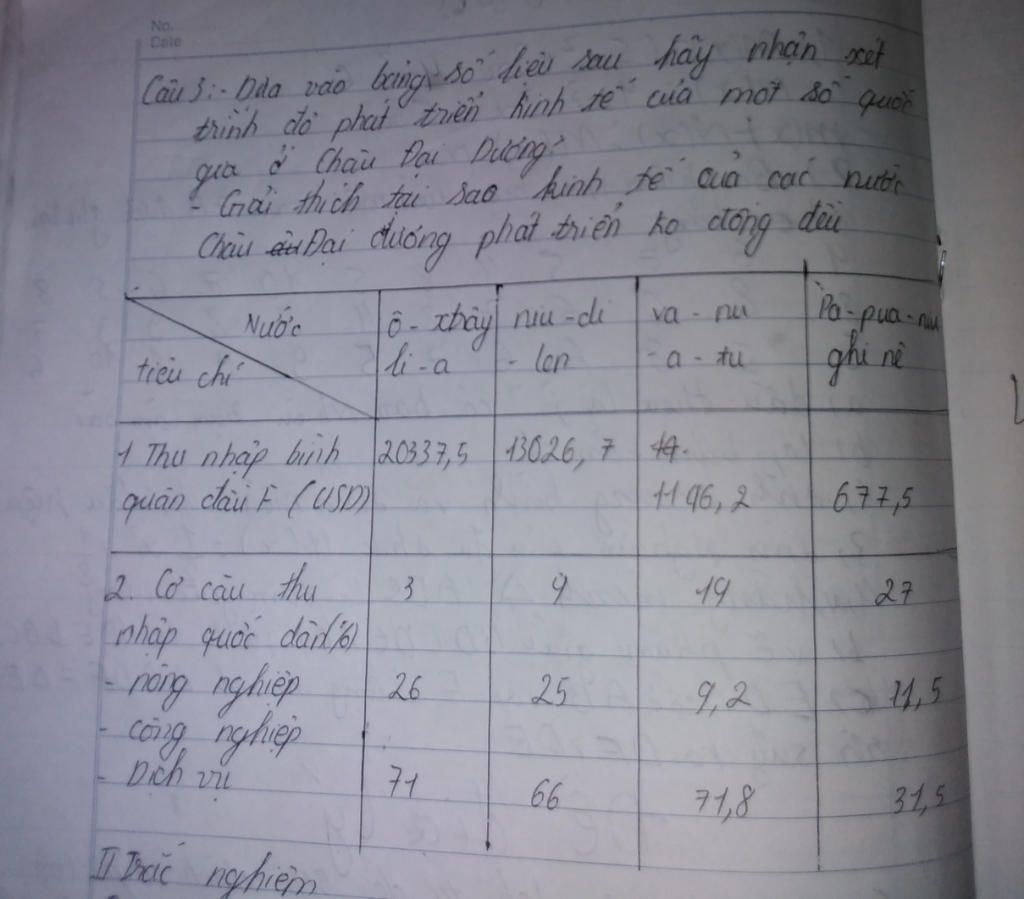 No.
Date
Câu 3:- Dựa vào bảng số liệu sau hãy nhận xét
trình độ phát triển kinh tế của một số quốc
gia ở Châu Đại Dương?
- Giải thích tại sao kinh tế của các nước
Châu Đại dương phát triển ko đồng đều
Nước
tiêu chí
ô-xtrây
li-a
niu-di
-len
va-nu
-a-tu
Pa-pua-niu
ghi nê
1 Thu nhập bình
quân đầu F (USD)
20337,5
13026,7
1196,2
677,5
2. Cơ cấu thu
nhập quốc dân(%)
3
9
19
27
- nông nghiệp
26
25
9,2
41,5
- công nghiệp
- Dịch vụ
71
66
71,8
31,5
II Trắc nghiệm